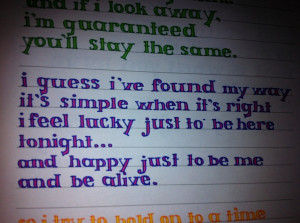 and if i look away,
i'm guaranteed
you'll stay the same.
i guess i've found my way
it's simple when it's right
i feel lucky just to be here
tonight...
and happy just to be me
and be alive.
so i try to hold on to a time